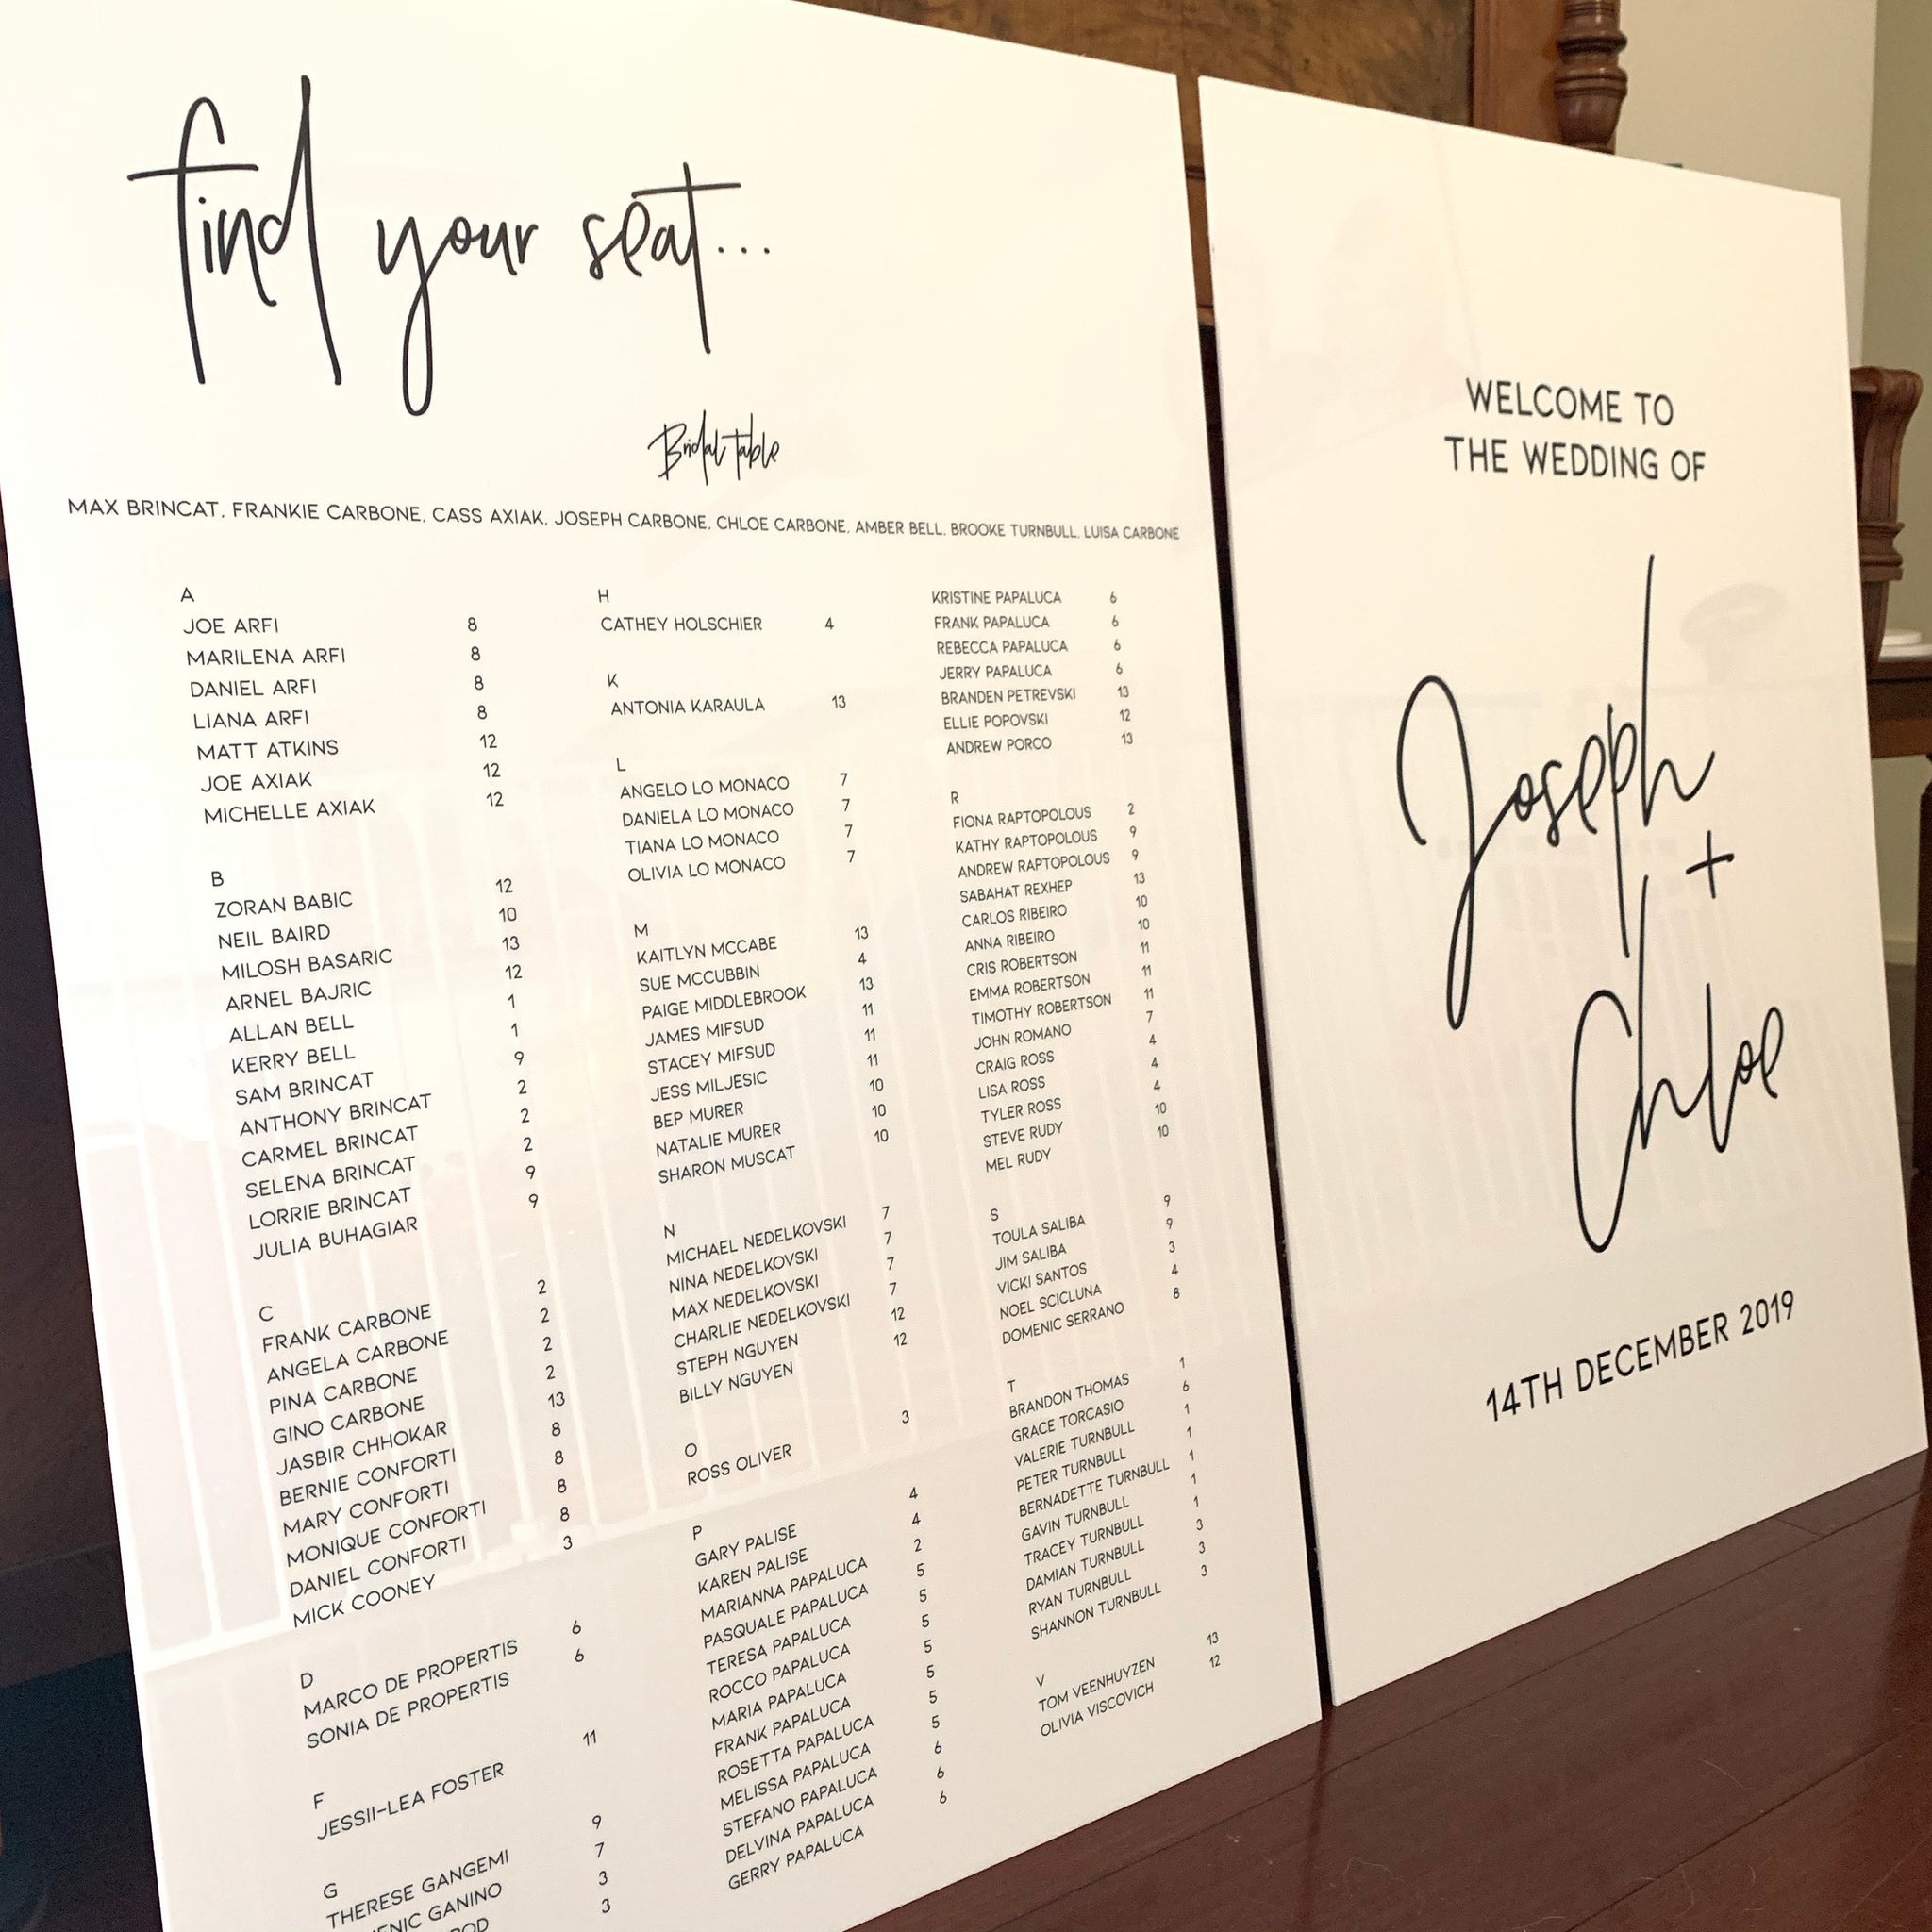 find your seat...
Bridal table
MAX BRINCAT, FRANKIE CARBONE, CASS AXIAK, JOSEPH CARBONE, CHLOE CARBONE, AMBER BELL, BROOKE TURNBULL, LUISA CARBONE
A
JOE ARFI 8
MARILENA ARFI 8
DANIEL ARFI 8
LIANA ARFI 8
MATT ATKINS 12
JOE AXIAK 12
MICHELLE AXIAK 12
B
ZORAN BABIC 12
NEIL BAIRD 10
MILOSH BASARIC 13
ARNEL BAJRIC 12
ALLAN BELL 1
KERRY BELL 1
SAM BRINCAT 9
ANTHONY BRINCAT 2
CARMEL BRINCAT 2
SELENA BRINCAT 2
LORRIE BRINCAT 9
JULIA BUHAGIAR 9
C
FRANK CARBONE 2
ANGELA CARBONE 2
PINA CARBONE 2
GINO CARBONE 2
JASBIR CHHOKAR 13
BERNIE CONFORTI 8
MARY CONFORTI 8
MONIQUE CONFORTI 8
DANIEL CONFORTI 8
MICK COONEY 3
D
MARCO DE PROPERTIS 6
SONIA DE PROPERTIS 6
F
JESSII-LEA FOSTER 11
G
THERESE GANGEMI 9
GANINO 7
3
3
H
CATHEY HOLSCHIER 4
K
ANTONIA KARAULA 13
L
ANGELO LO MONACO 7
DANIELA LO MONACO 7
TIANA LO MONACO 7
OLIVIA LO MONACO 7
M
KAITLYN MCCABE 13
SUE MCCUBBIN 4
PAIGE MIDDLEBROOK 13
JAMES MIFSUD 11
STACEY MIFSUD 11
JESS MILJESIC 11
BEP MURER 10
NATALIE MURER 10
SHARON MUSCAT 10
N
MICHAEL NEDELKOVSKI 7
NINA NEDELKOVSKI 7
MAX NEDELKOVSKI 7
CHARLIE NEDELKOVSKI 7
STEPH NGUYEN 12
BILLY NGUYEN 12
O
ROSS OLIVER 3
P
GARY PALISE 4
KAREN PALISE 4
MARIANNA PAPALUCA 2
PASQUALE PAPALUCA 5
TERESA PAPALUCA 5
ROCCO PAPALUCA 5
MARIA PAPALUCA 5
FRANK PAPALUCA 5
ROSETTA PAPALUCA 5
MELISSA PAPALUCA 5
STEFANO PAPALUCA 6
DELVINA PAPALUCA 6
GERRY PAPALUCA 6
KRISTINE PAPALUCA 6
FRANK PAPALUCA 6
REBECCA PAPALUCA 6
JERRY PAPALUCA 6
BRANDEN PETREVSKI 13
ELLIE POPOVSKI 12
ANDREW PORCO 13
R
FIONA RAPTOPOLOUS 2
KATHY RAPTOPOLOUS 9
ANDREW RAPTOPOLOUS 9
SABAHAT REXHEP 13
CARLOS RIBEIRO 10
ANNA RIBEIRO 10
CRIS ROBERTSON 11
EMMA ROBERTSON 11
TIMOTHY ROBERTSON 11
JOHN ROMANO 7
CRAIG ROSS 4
LISA ROSS 4
TYLER ROSS 4
STEVE RUDY 10
MEL RUDY 10
S
TOULA SALIBA 9
JIM SALIBA 9
VICKI SANTOS 3
NOEL SCICLUNA 4
DOMENIC SERRANO 8
T
BRANDON THOMAS 1
GRACE TORCASIO 6
VALERIE TURNBULL 1
PETER TURNBULL 1
BERNADETTE TURNBULL 1
GAVIN TURNBULL 1
TRACEY TURNBULL 1
DAMIAN TURNBULL 3
RYAN TURNBULL 3
SHANNON TURNBULL 3
V
TOM VEENHUYZEN 13
OLIVIA VISCOVICH 12
WELCOME TO
THE WEDDING OF
Joseph
+
Chloe
14TH DECEMBER 2019